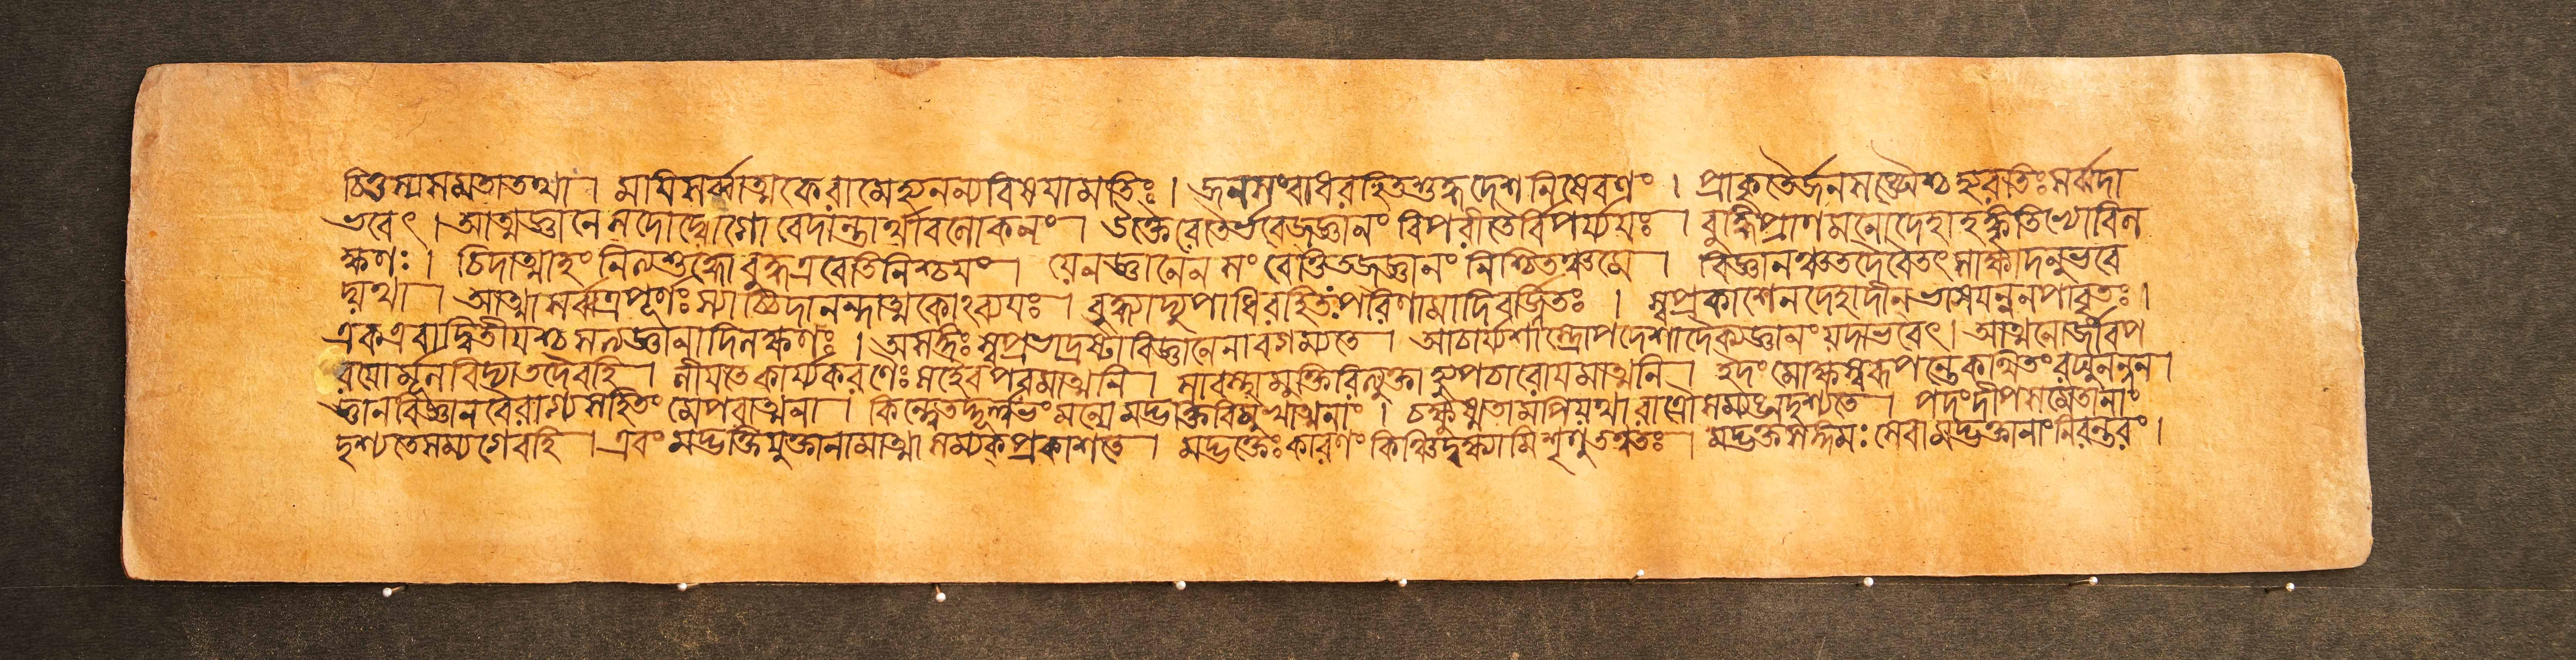 চিত্তস্যসমতাতথা । মযিসর্ব্বাত্মকেরামেহ্যনন্যবিষযামতিঃ । জনসংবাধরহিতশুদ্ধদেশনিষেবণং । প্রাকৃতৈর্জনসঙ্ঘৈশ্চহ্যরতিঃসর্ব্বদা
ভবেৎ । আত্মজ্ঞানেসদোদ্যোগোবেদান্তার্থাবলোকনং । উক্তৈরেতৈর্ভবেজ্জ্ঞানং বিপরীতৈর্বিপর্য্যযঃ । বুদ্ধিপ্রাণমনোদেহাহঙ্কৃতিভ্যোবিল
ক্ষণঃ । চিদাত্মাহং নিত্যশুদ্ধোবুদ্ধএবেতিনিশ্চযং । যেনজ্ঞানেন সংবেত্তিতজ্জ্ঞানং নিশ্চিতঞ্চমে । বিজ্ঞানঞ্চতদৈবৈতৎসাক্ষাদনুভবে
দ্যথা । আত্মাসর্ব্বত্রপূর্ণঃস্যাচ্চিদানন্দাত্মকোঽব্যযঃ । বুদ্ধ্যাদ্যুপাধিরহিতঃপরিণামাদিবর্জিতঃ । স্বপ্রকাশেনদেহাদীনভাসযন্ননপাবৃতঃ ।
একএবাদ্বিতীযশ্চসত্যজ্ঞানাদিলক্ষণঃ । অসঙ্গঃস্বপ্রভোদ্রষ্টাবিজ্ঞানেনাবগম্যতে । আচার্য্যশাস্ত্রোপদেশাদৈক্যজ্ঞানং যদাভবেৎ । আত্মনোর্জীবপ
রযোর্মূলাবিদ্যাতদৈবহি । লীযতেকার্য্যকরণৈঃসহৈবপরমাত্মনি । সাবস্থামুক্তিরিত্যুক্তাহ্যুপচারোযমাত্মনি । ইদং মোক্ষস্বরূপন্তেকথিতংরঘুনন্দন ।
জ্ঞানবিজ্ঞানবৈরাগ্যসহিতং মেপরাত্মনঃ । কিন্ত্বেতদ্দুর্ল্লভং মন্যেমদ্ভক্তিবিমুখাত্মনাং । চক্ষুষ্মতামপিযথারাত্রৌসম্যঙ্নদৃশ্যতে । পদংদীপসমেতানাং
দৃশ্যতেসম্যগেবহি । এবং মদ্ভক্তিযুক্তানামাত্মাসম্যক্প্রকাশতে । মদ্ভক্তেঃকারণং কিঞ্চিদ্বক্ষ্যামিশৃণুতত্ত্বতঃ । মদ্ভক্তসঙ্গমঃসেবামদ্ভক্তানাংনিরন্তরং ।